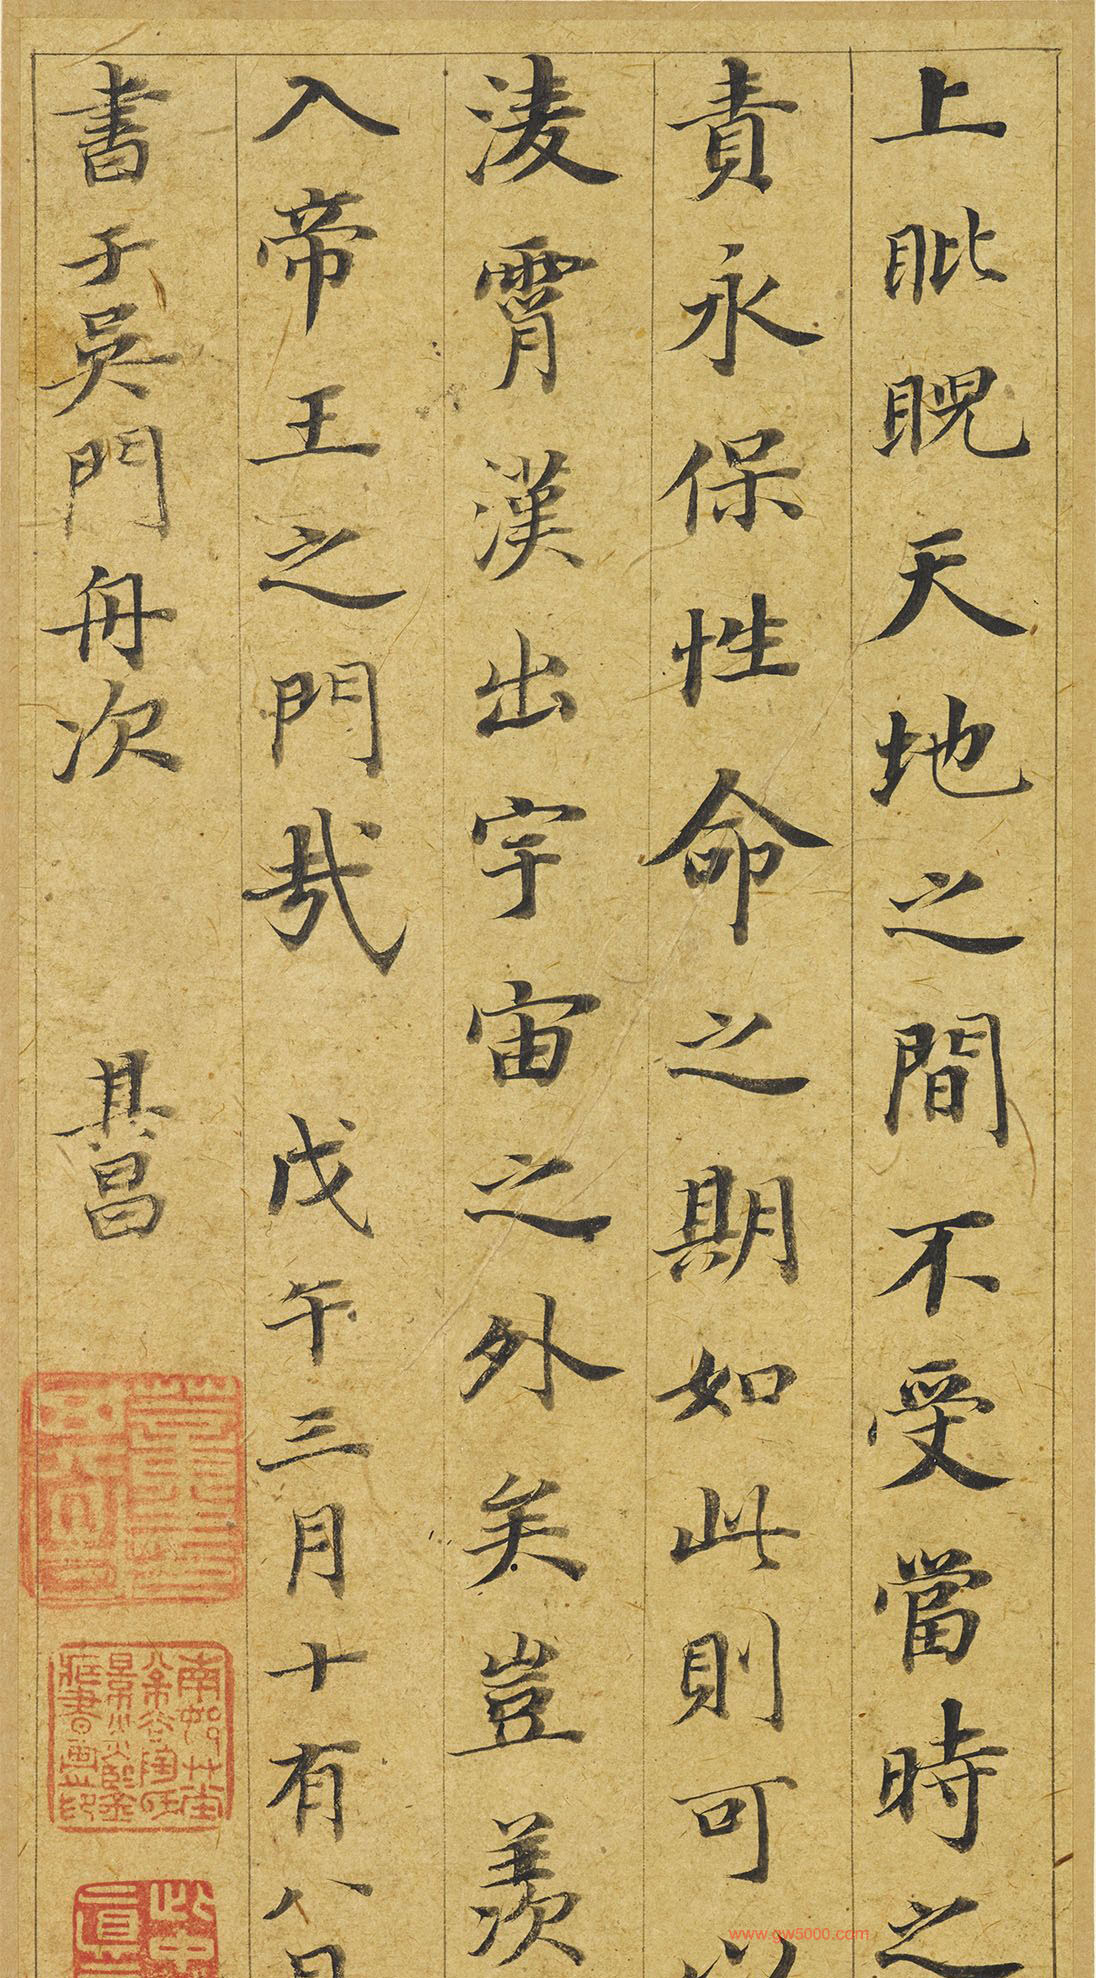 上睥睨天地之間不受當時之
責永保性命之期如此則可以
淩霄漢出宇宙之外矣豈羨
入帝王之門哉 戊午三月十有八日
書于吳門舟次 其昌
www.gw5000.com